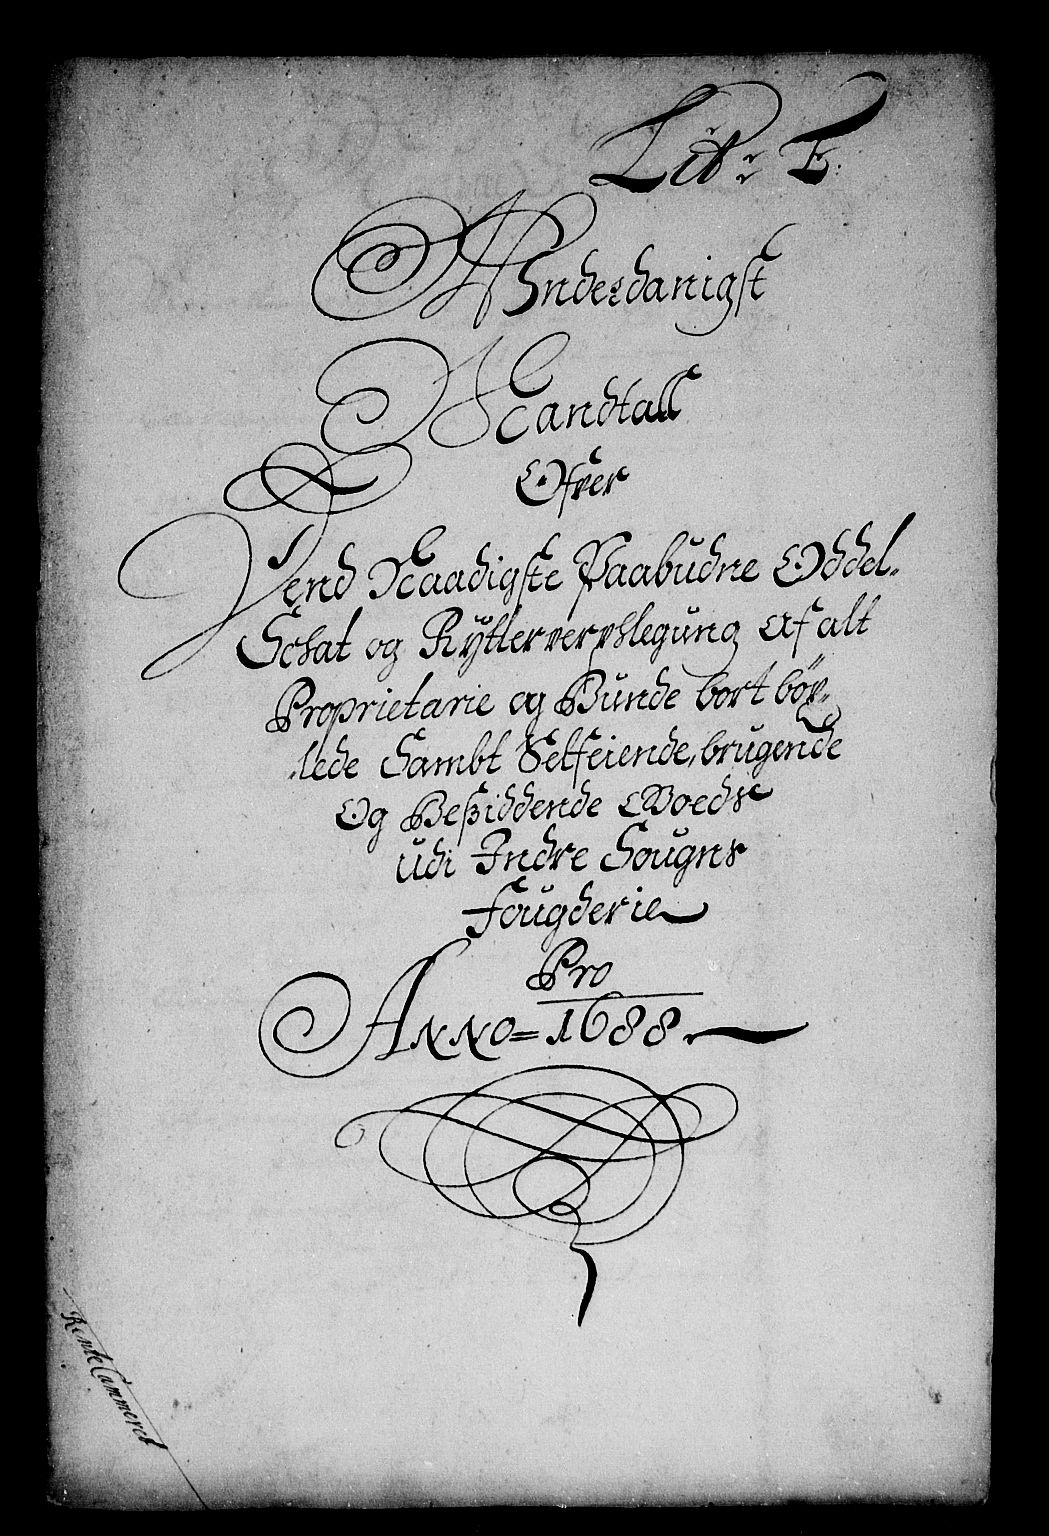 Lit: E:
Vnderdanigst
Mandtall
Ofver
Dend Naadigste Paabudne Oddel-
Schat og Rytterverpflegung Af alt
Proprietarie og Bunde bort böx-
lede Sambt Selfeiende, brugende
Og Beßiddende Goeds
udi Indre Sougns
Fougderie
Pro
Anno = 1688.
RenteCammeret